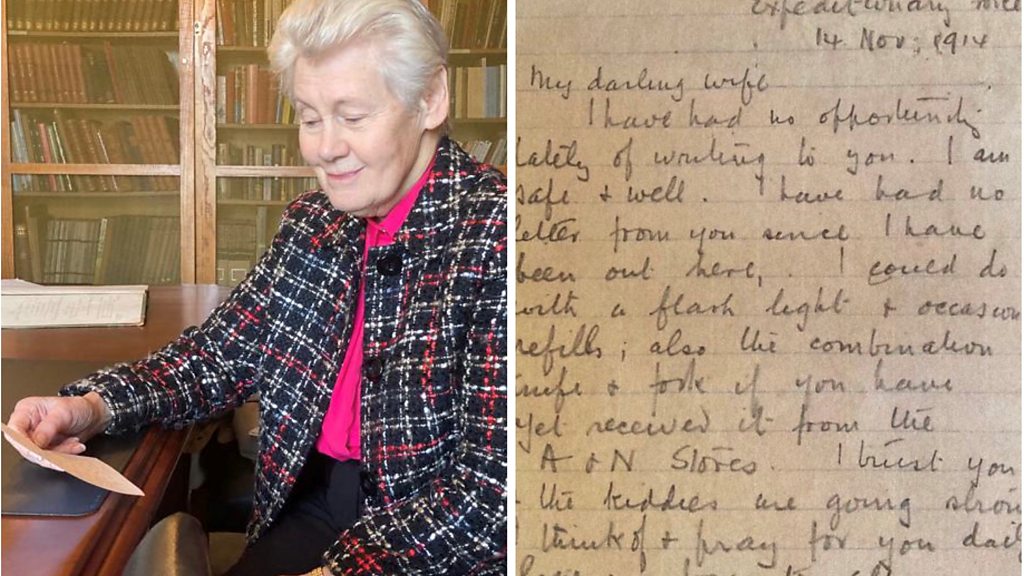 Expeditionary Force
14 Nov; 1914
My darling wife
I have had no opportunity
lately of writing to you. I am
safe & well. I have had no
letter from you since I have
been out here,. I could do
with a flash light & occasion
refills; also the combination
knife & fork if you have
yet received it from the
A & N Stores. I trust you
the kiddies are going stron
think of & pray for you dail